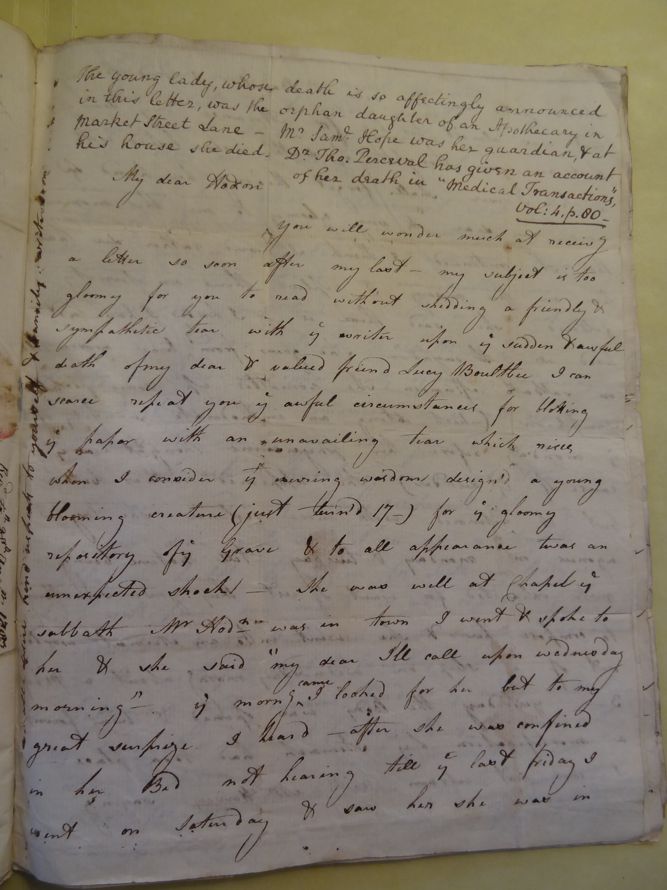 The young lady, whose death is so affectingly announced
in this letter, was the orphan daughter of an Apothecary in
Market Street Lane – Mr. Saml. Hope was her guardian, & at
his house she died. Dr. Tho. Percival has given an account
of her death in "Medical Transactions",
Vol: 4. p. 80 –
My dear Hodson
You will wonder much at receivg
a letter so soon after my last – my subject is too
gloomy for you to read without shedding a friendly &
sympathetic tear with ye writer upon ye sudden & awful
death of my dear & valued friend Lucy Boultbee I can
scarce repeat you ye awful circumstances for bloting
ye paper with an unavailing tear which rises
when I consider ye unerring wisdom design'd a young
blooming creature (just turn'd 17 –) for ye gloomy
repository of ye Grave & to all appearance twas an
unexpected shock! – She was well at Chapel ye
sabbath Mr was in town I went & spoke to
her & she said "my dear I'll call upon wednesday
morning" – ye morng came I looked for her but to my
great surprize I heard – after she was confined
in her Bed not hearing till ye last friday I
went on Saturday & saw her she was in